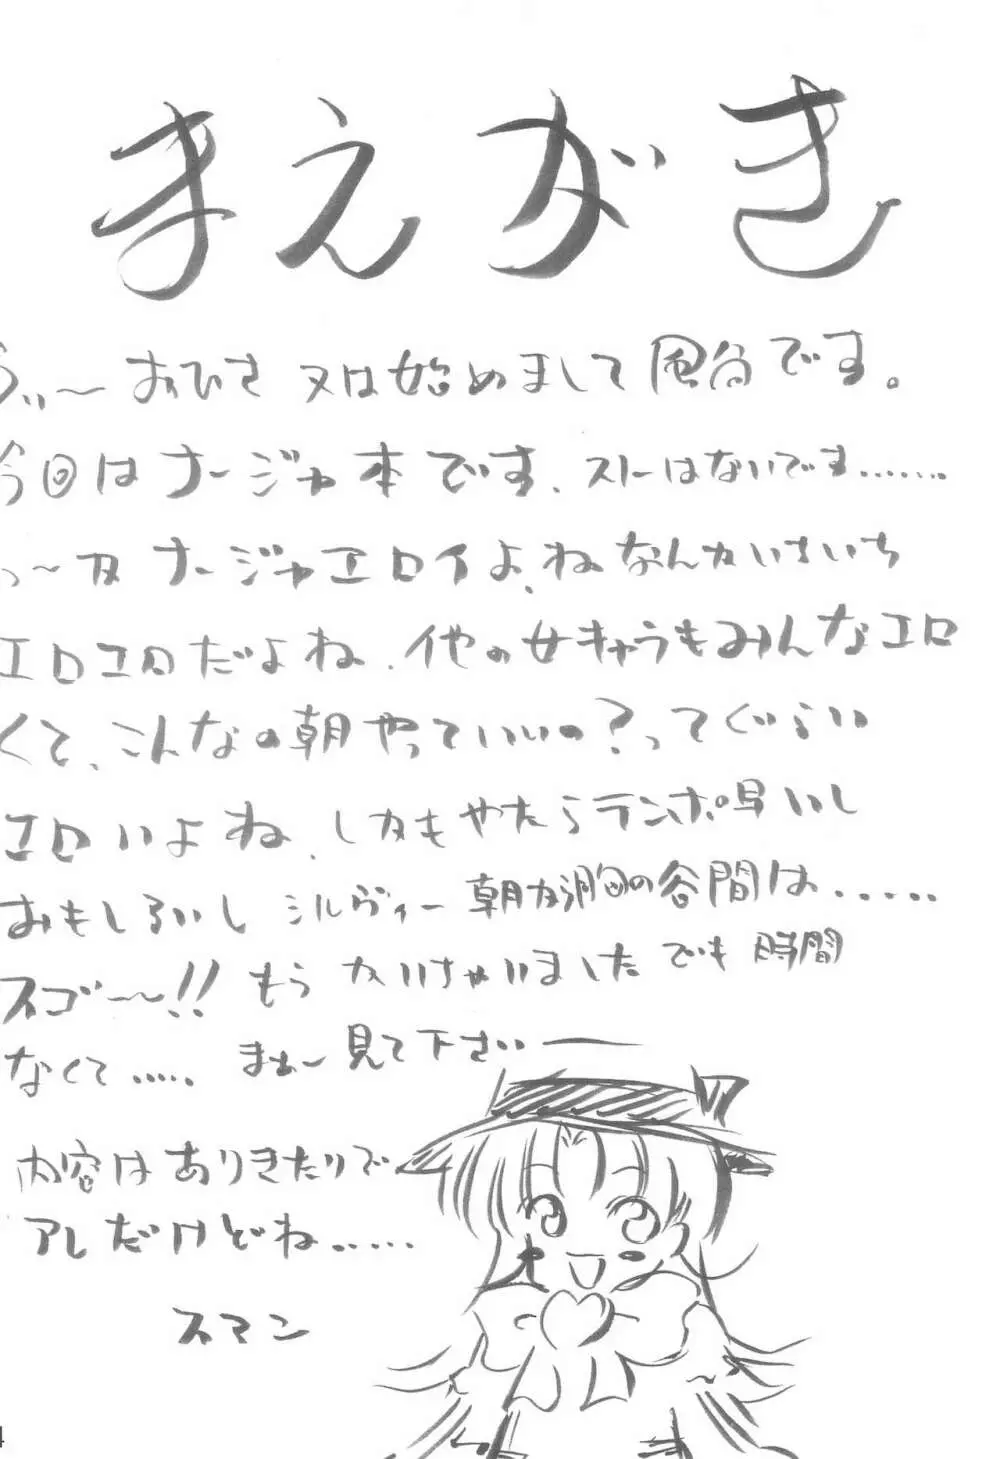 まえがき
うぃ～おひさ 又は始めまして 風宮です。
今回はナージャ本です、ストーはないです……
っ～か ナージャエロイよ、ねなんかいちいち
エロエロだよね、他の女キャラもみんなエロ
くて、こんなの朝やっていいの?ってぐらい
エロいよね、しかもやたらテンポ早いし
おもしろいし シルヴィー 朝から胸の谷間は……
スゴ～!! もう かいちゃいました でも 時間
なくて…… まぁ～見て下さいー
内容はありきたりで
アレだけどね……
スマン
4